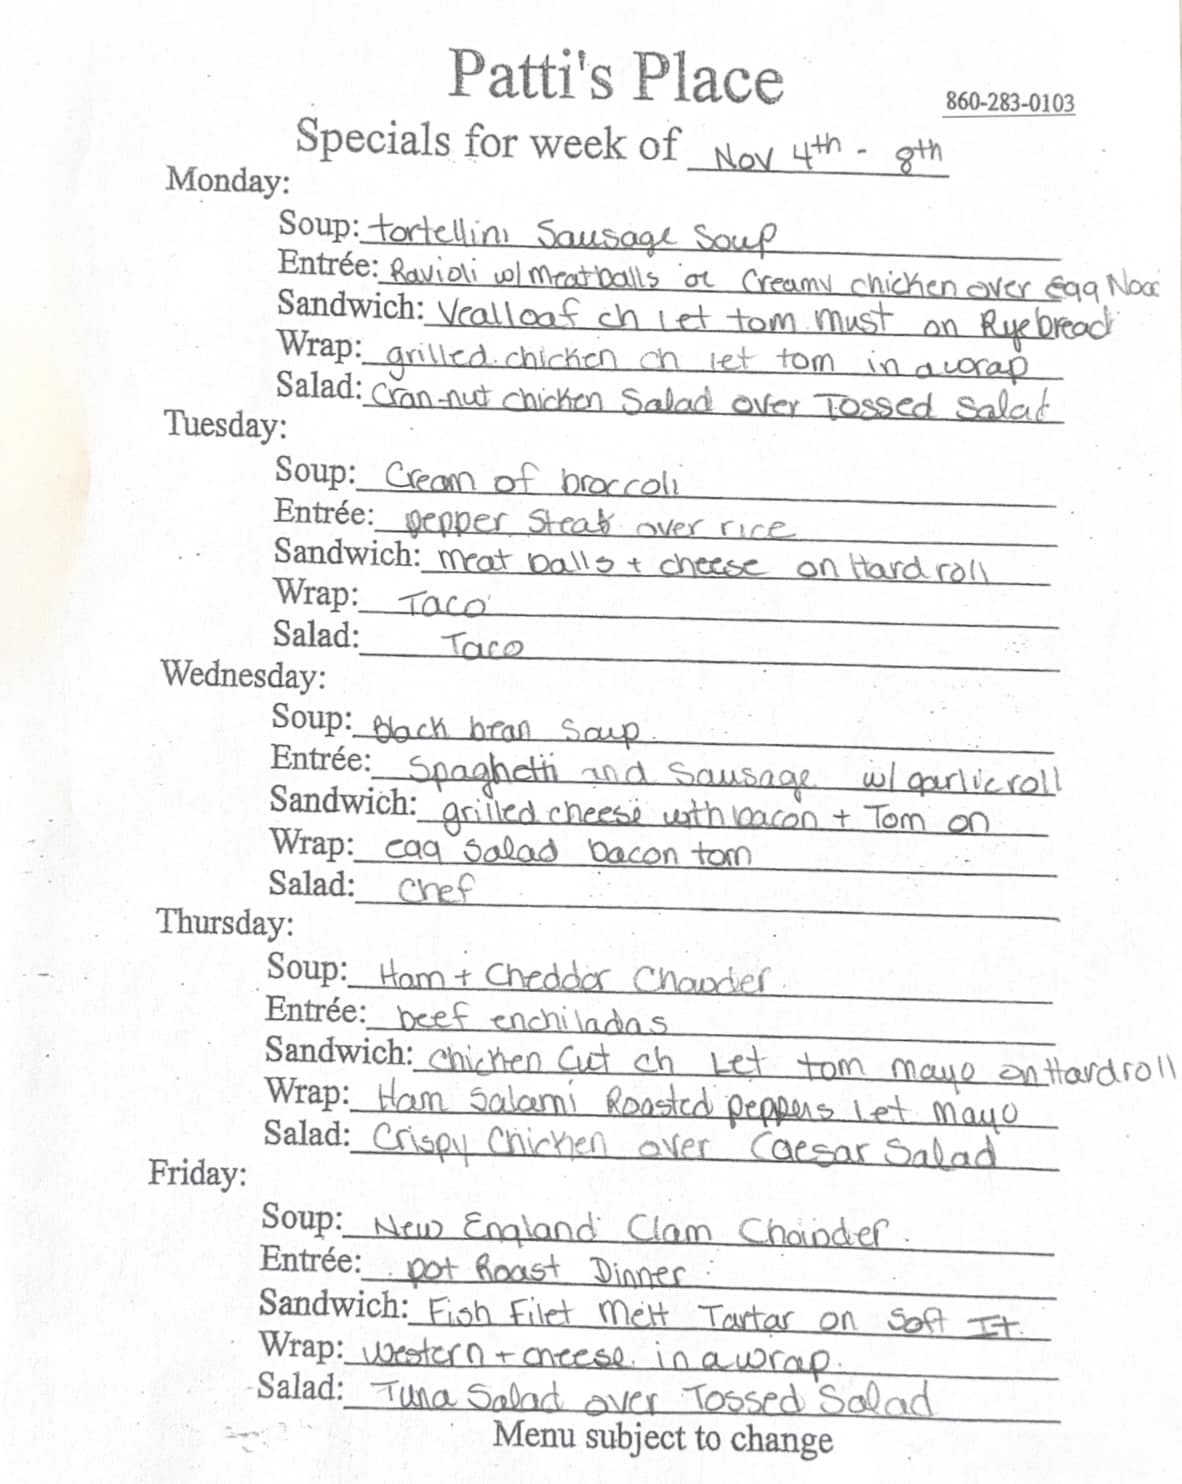 Patti's Place
860-283-0103
Specials for week of Nov 4th - 8th
Monday:
Soup: tortellini Sausage Soup
Entrée: Ravioli w/ meatballs or Creamy chicken over Egg Noo
Sandwich: Vealloaf ch Let tom must on Rye bread
Wrap: grilled chicken ch let tom in a wrap
Salad: Cran-nut chicken Salad over Tossed Salad
Tuesday:
Soup: Cream of broccoli
Entrée: pepper Steak over rice
Sandwich: meat balls + cheese on Hard roll
Wrap: Taco
Salad: Taco
Wednesday:
Soup: Black bean Soup
Entrée: Spaghetti and Sausage w/ garlic roll
Sandwich: grilled cheese with bacon + Tom on
Wrap: egg Salad bacon tom
Salad: Chef
Thursday:
Soup: Ham + Cheddar Chowder
Entrée: beef enchiladas
Sandwich: Chicken Cut ch Let tom mayo on Hard roll
Wrap: Ham Salami Roasted peppers Let Mayo
Salad: Crispy Chicken over Caesar Salad
Friday:
Soup: New England Clam Chowder
Entrée: pot Roast Dinner
Sandwich: Fish Filet Melt Tartar on Soft It.
Wrap: Western + cheese in a wrap.
Salad: Tuna Salad over Tossed Salad
Menu subject to change